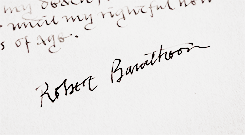 my
until my rightful
s of age.
Robert Baratheon